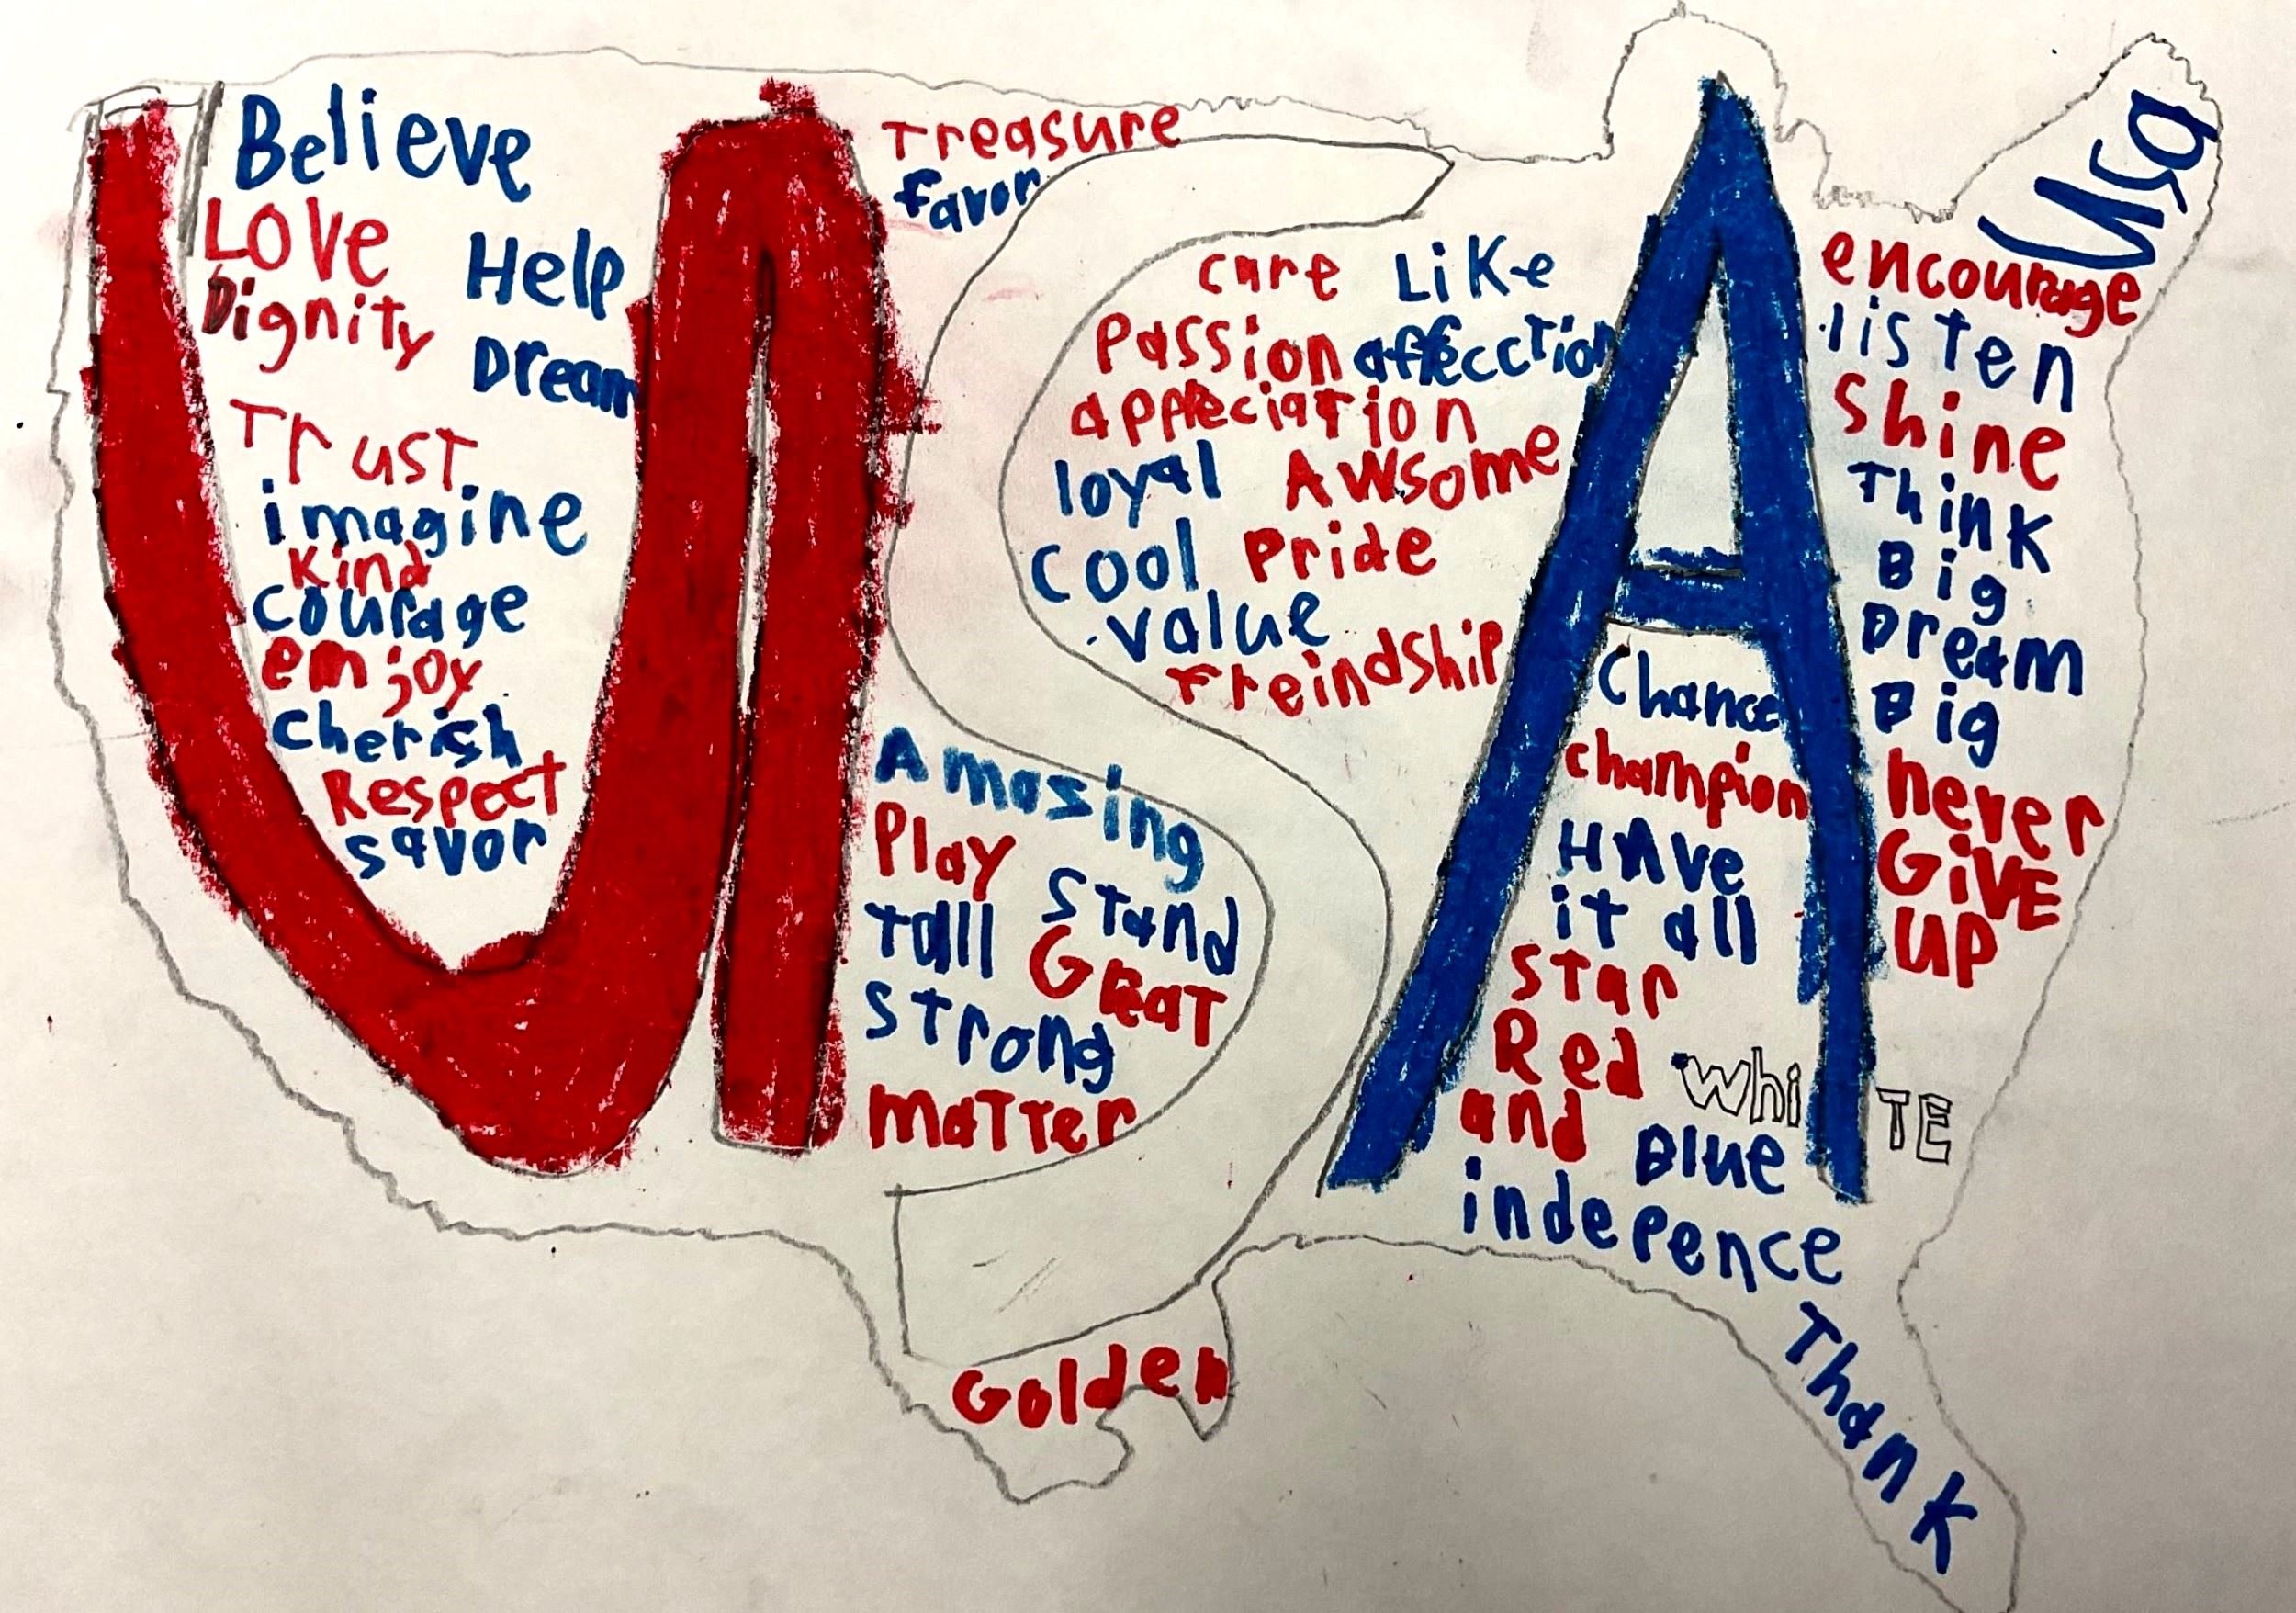 USA
Believe
Love
Help
Dignity
Dream
Trust
imagine
Kind
courage
emjoy
cherish
Respect
savor
Treasure
favor
care Like
Passion affecction
appreciation
loyal Awsome
cool Pride
value
Freindship
Amazing
Play
Stand
Tall Great
Strong
matter
Golden
Usa
encourage
listen
Shine
Think
Big
Dream
Big
never
GiVE
UP
Chance
champion
HAve
it all
Star
Red WhiTE
and Blue
indepence
Thank